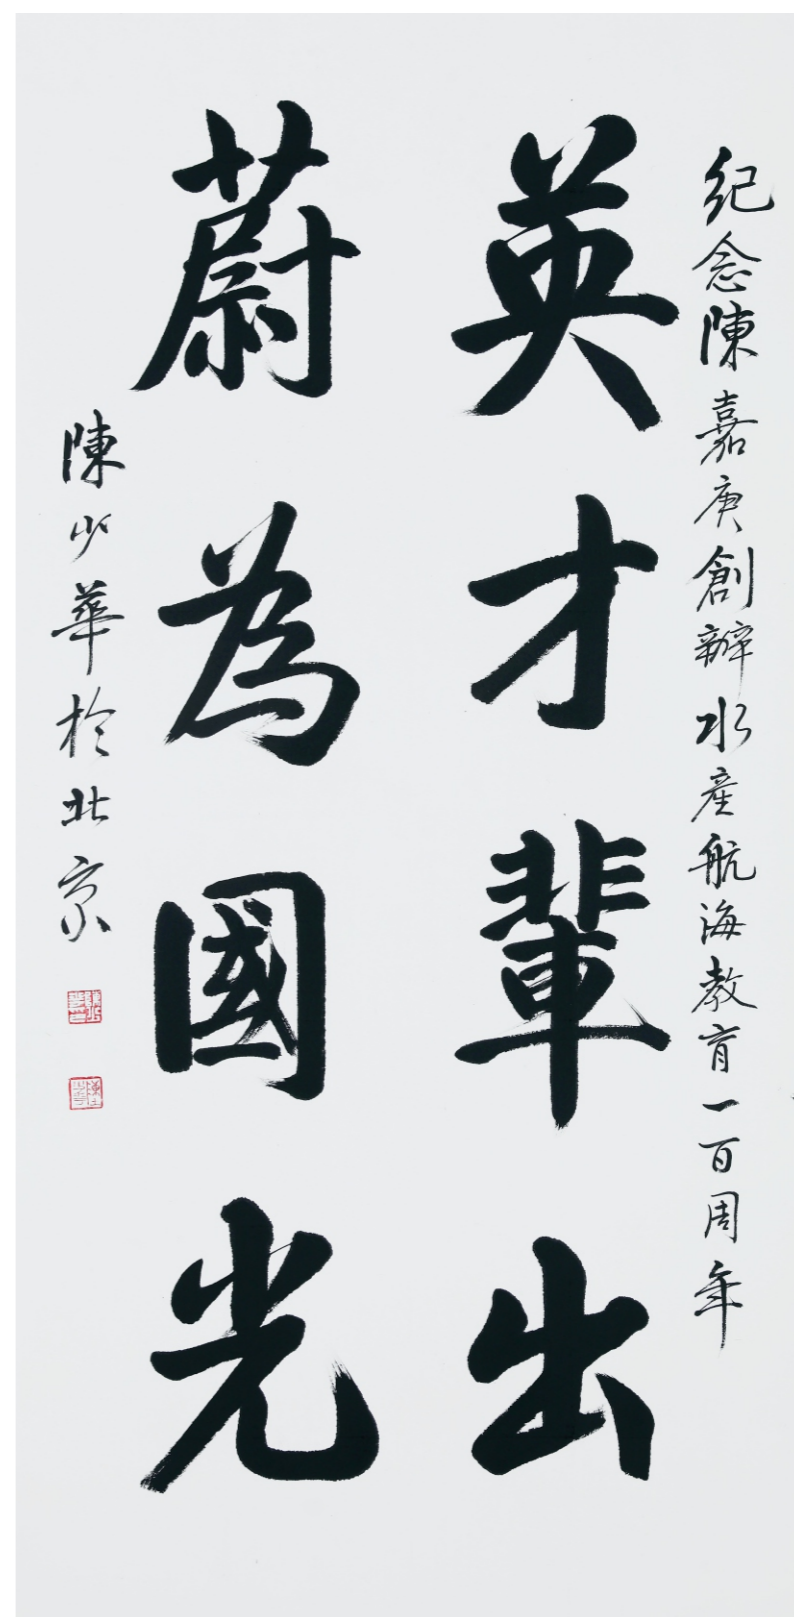 紀念陳嘉庚創辦水產航海教育一百周年
英才輩出
蔚為國光
陳少華於北京